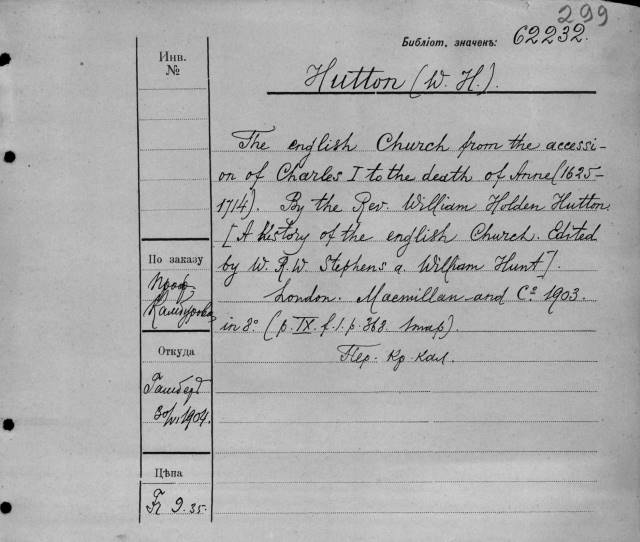 299
Библіот. значекъ: 62232.
Инв.
№
Hutton (W. H.).
The english Church from the accessi-
on of Charles I to the death of Anne (1625-
1714). By the Rev. William Holden Hutton.
[A history of the english Church. Edited
by W. R. W. Stephens a. William Hunt].
London. Macmillan and Cº 1903.
in 8º (p. IX. f. 1. p. 368. 1 map).
Пер. Кр. кал.
По заказу
проф.
Откуда
Гамберъ
1904.
Цѣна
Fr 9.35.